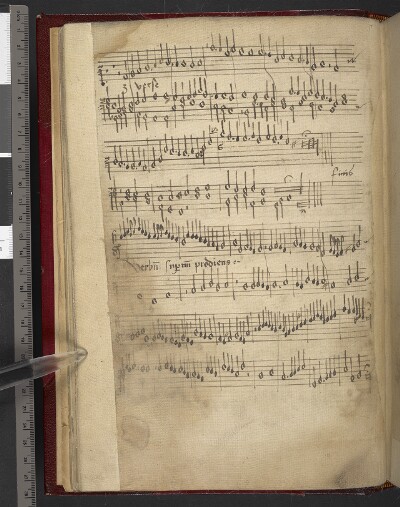 3 verse
finis
Verbũ supernũ prodiens :~